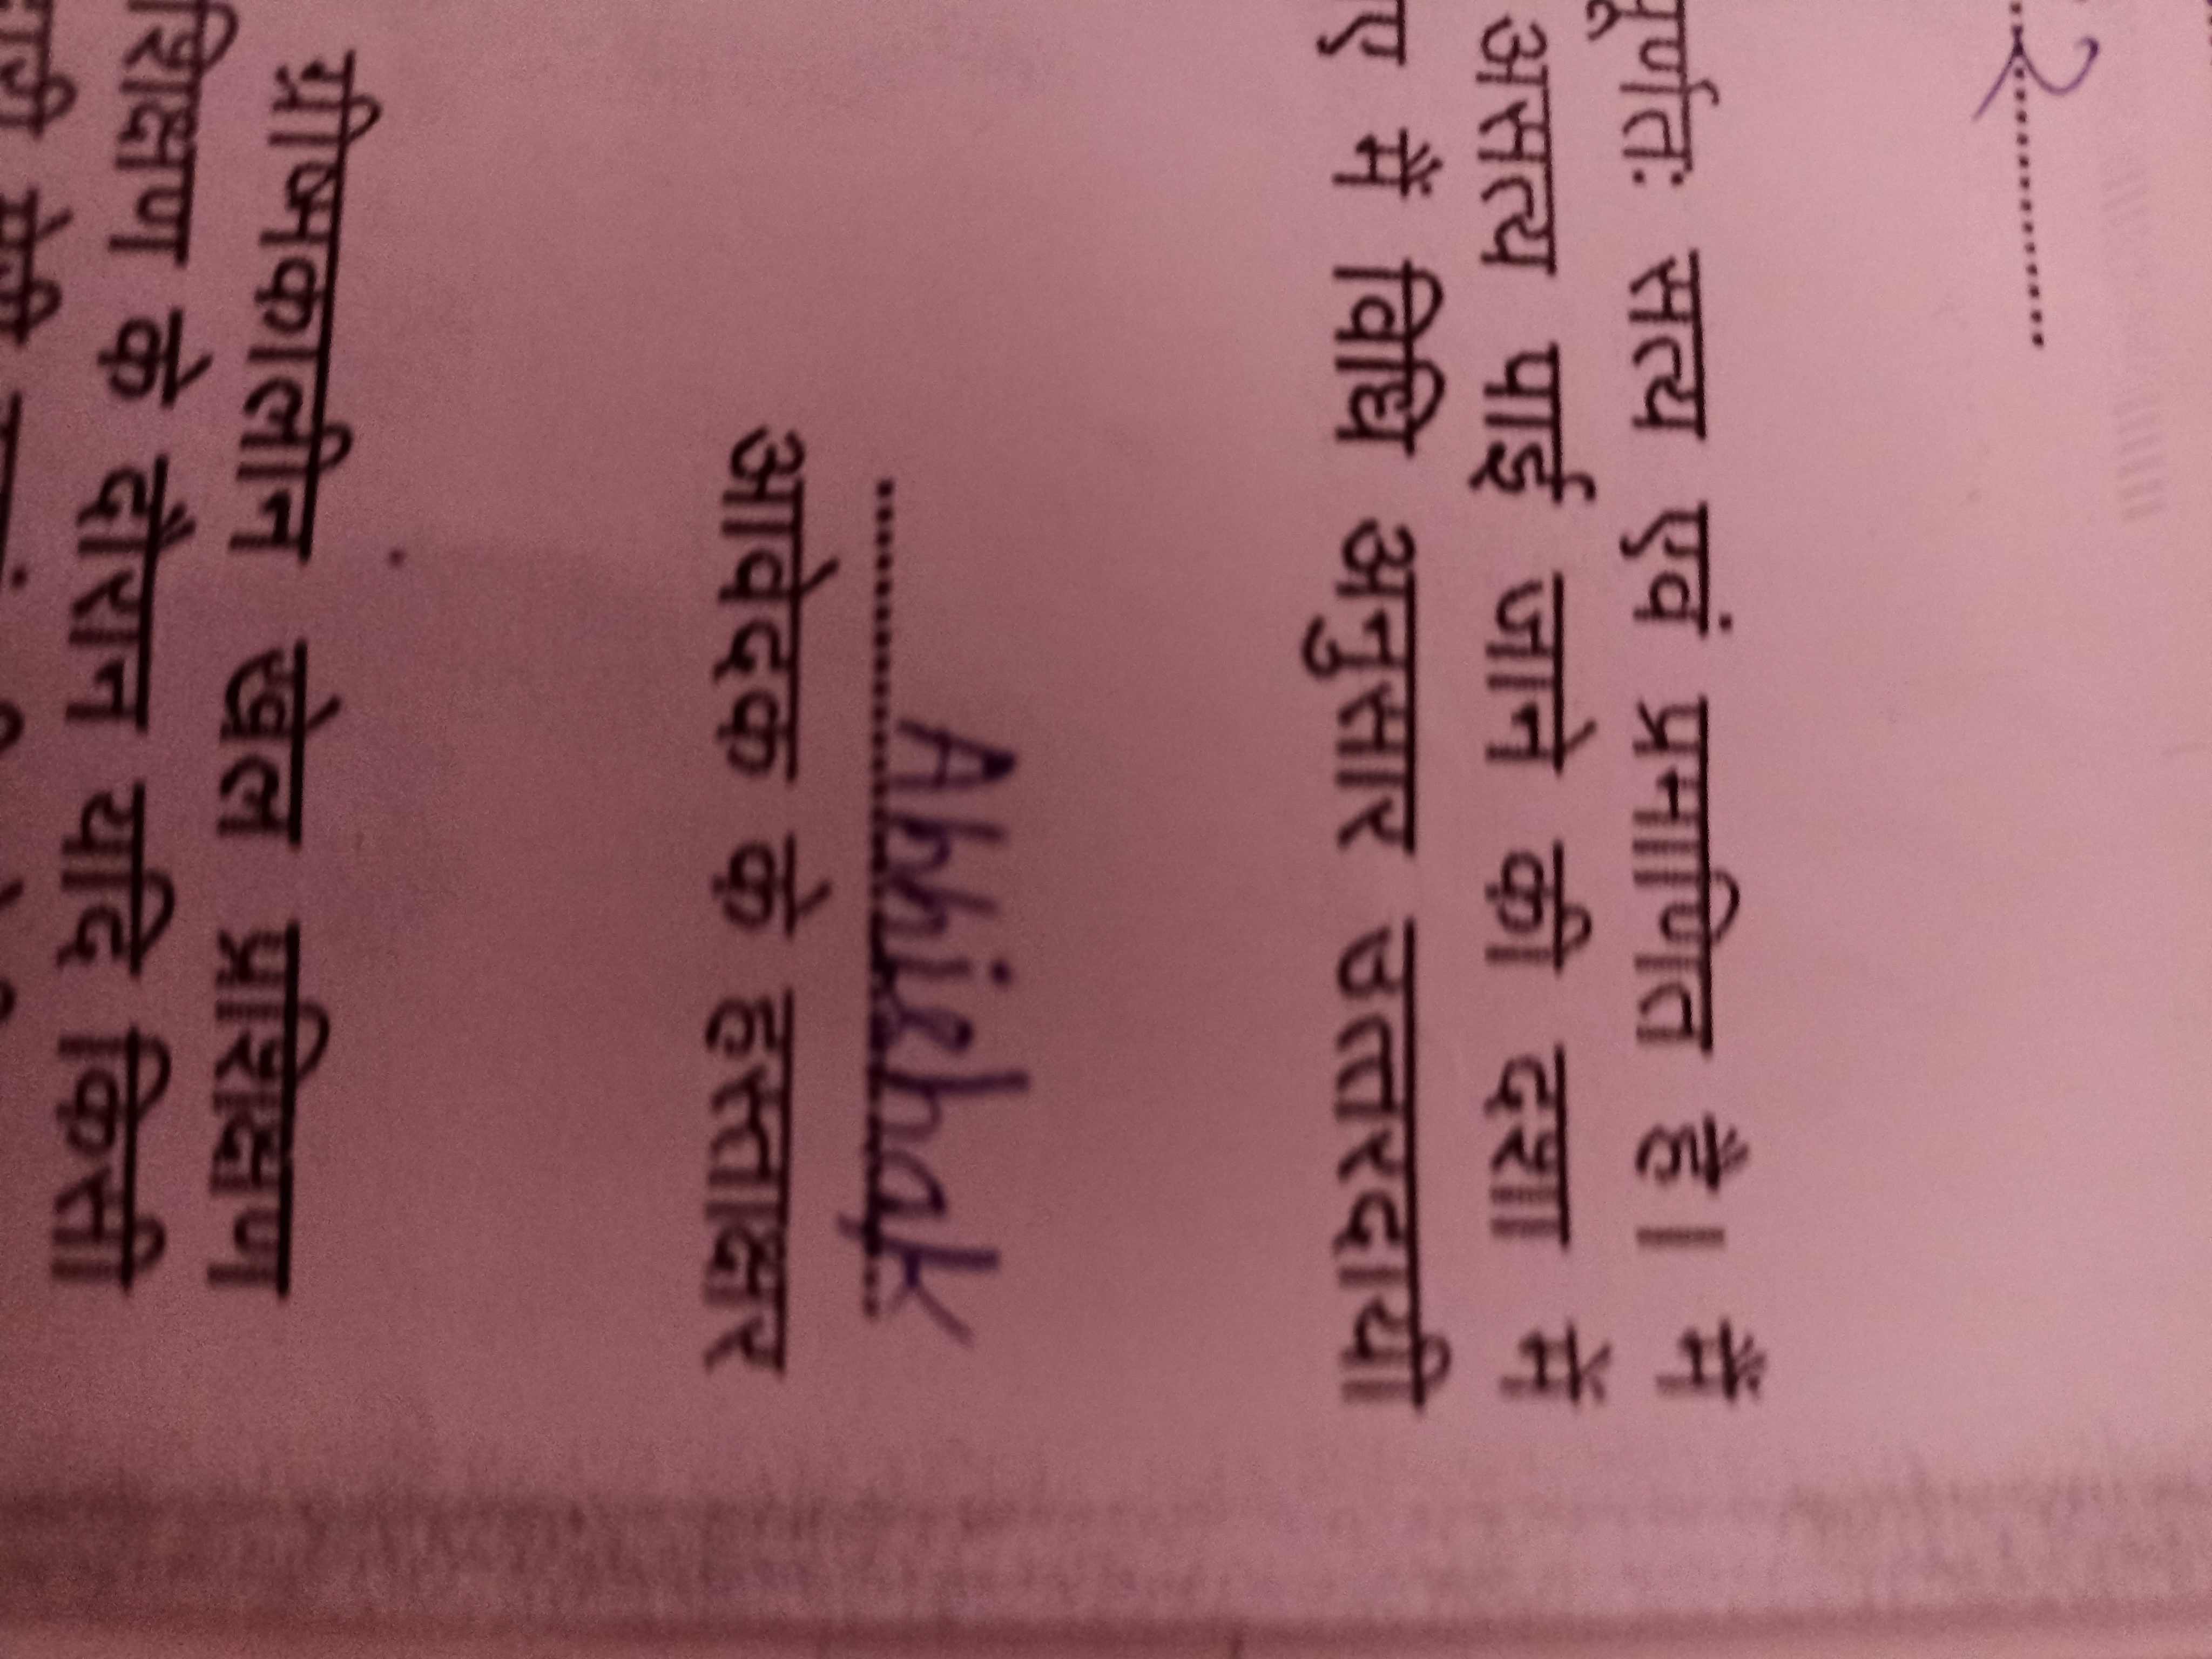 2
पूर्णतः सत्य एवं प्रमाणित है। मैं
असत्य पाई जाने की दशा में
में विधि अनुसार उत्तरदायी
Abhishak
आवेदक के हस्ताक्षर
ग्रीष्मकालीन खेल प्रशिक्षण
के दौरान यदि किसी